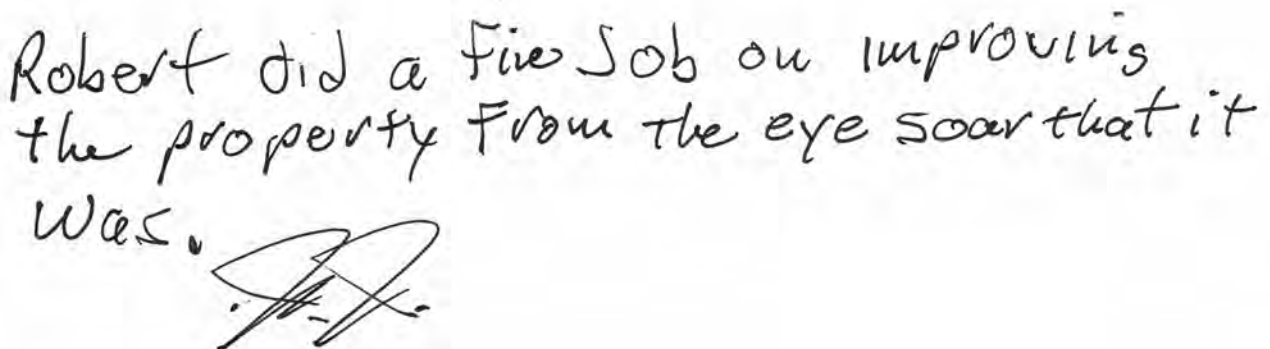 Robert did a fine Job on improving
the property From the eye soar that it
was.